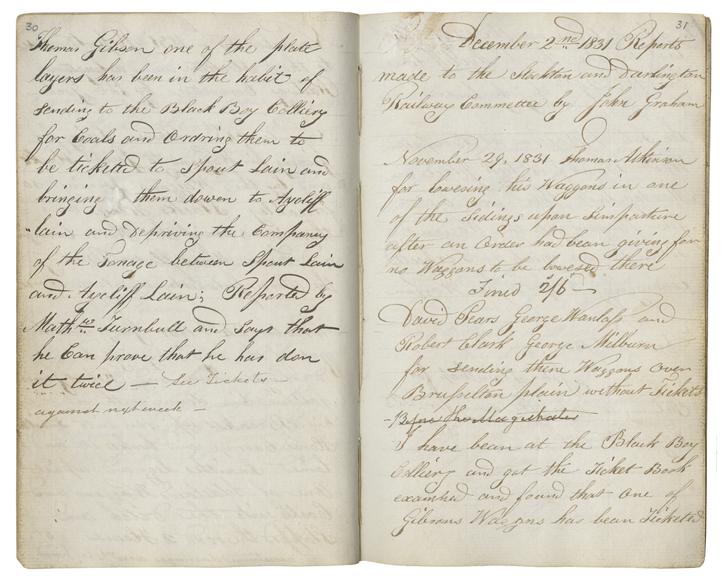 30
Thomas Gibson one of the plate
layers has been in the habit of
sending to the Black Boy Colliery
for Coals and Ordring them to
be ticketed to Spout Lain and
bringing them dowen to Aycliff
lain and Depriving the Companey
of the Tonage between Spout Lain
and Aycliff Lain; Reported by
Mathw Turnbull and Says that
he Can prove that he has don
it twice — See Tickets —
against next week —
31
December 2nd 1831 Reports
made to the Stockton and Darlington
Railway Committee by John Graham
November 29, 1831 Thomas Atkinson
for lowesing his Waggons in one
of the Sidings upon Simpasture
after an Order had been giving for
no Waggons to be lowesed there
Fined 2/6 —
David Sears George Wanless and
Robert Clark George Milburn
for Sending there Waggons over
Brusselton plain without Tickets
Before the Magistrates
I have bean at the Black Boy
Colliery and got the Ticket Book
examined and found that one of
Gibsons Waggons has bean Ticketed